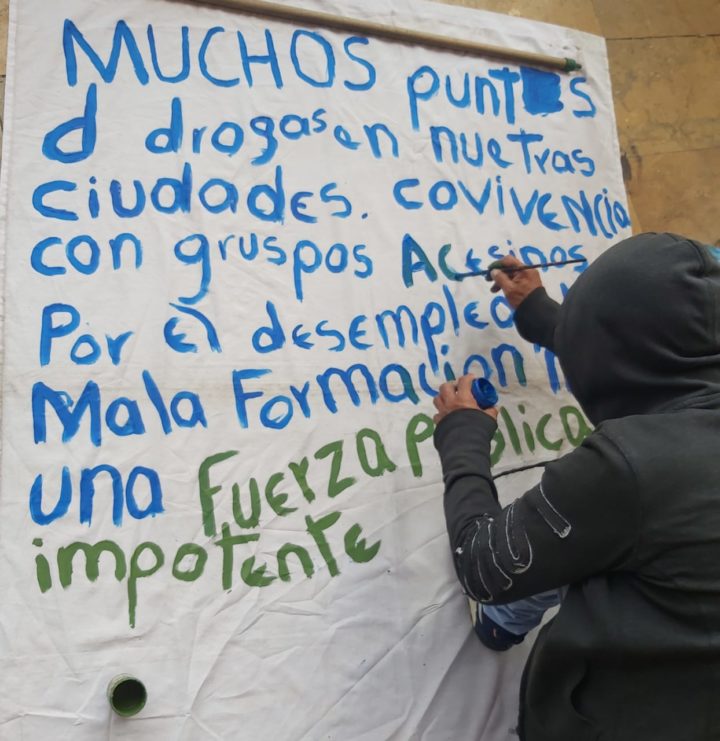 MUCHOS puntos
d drogas en nuetras
ciudades. covivencia
con gruspos Acesinos
Por El desempleo
Mala Formacion
una fuerza publica
impotente